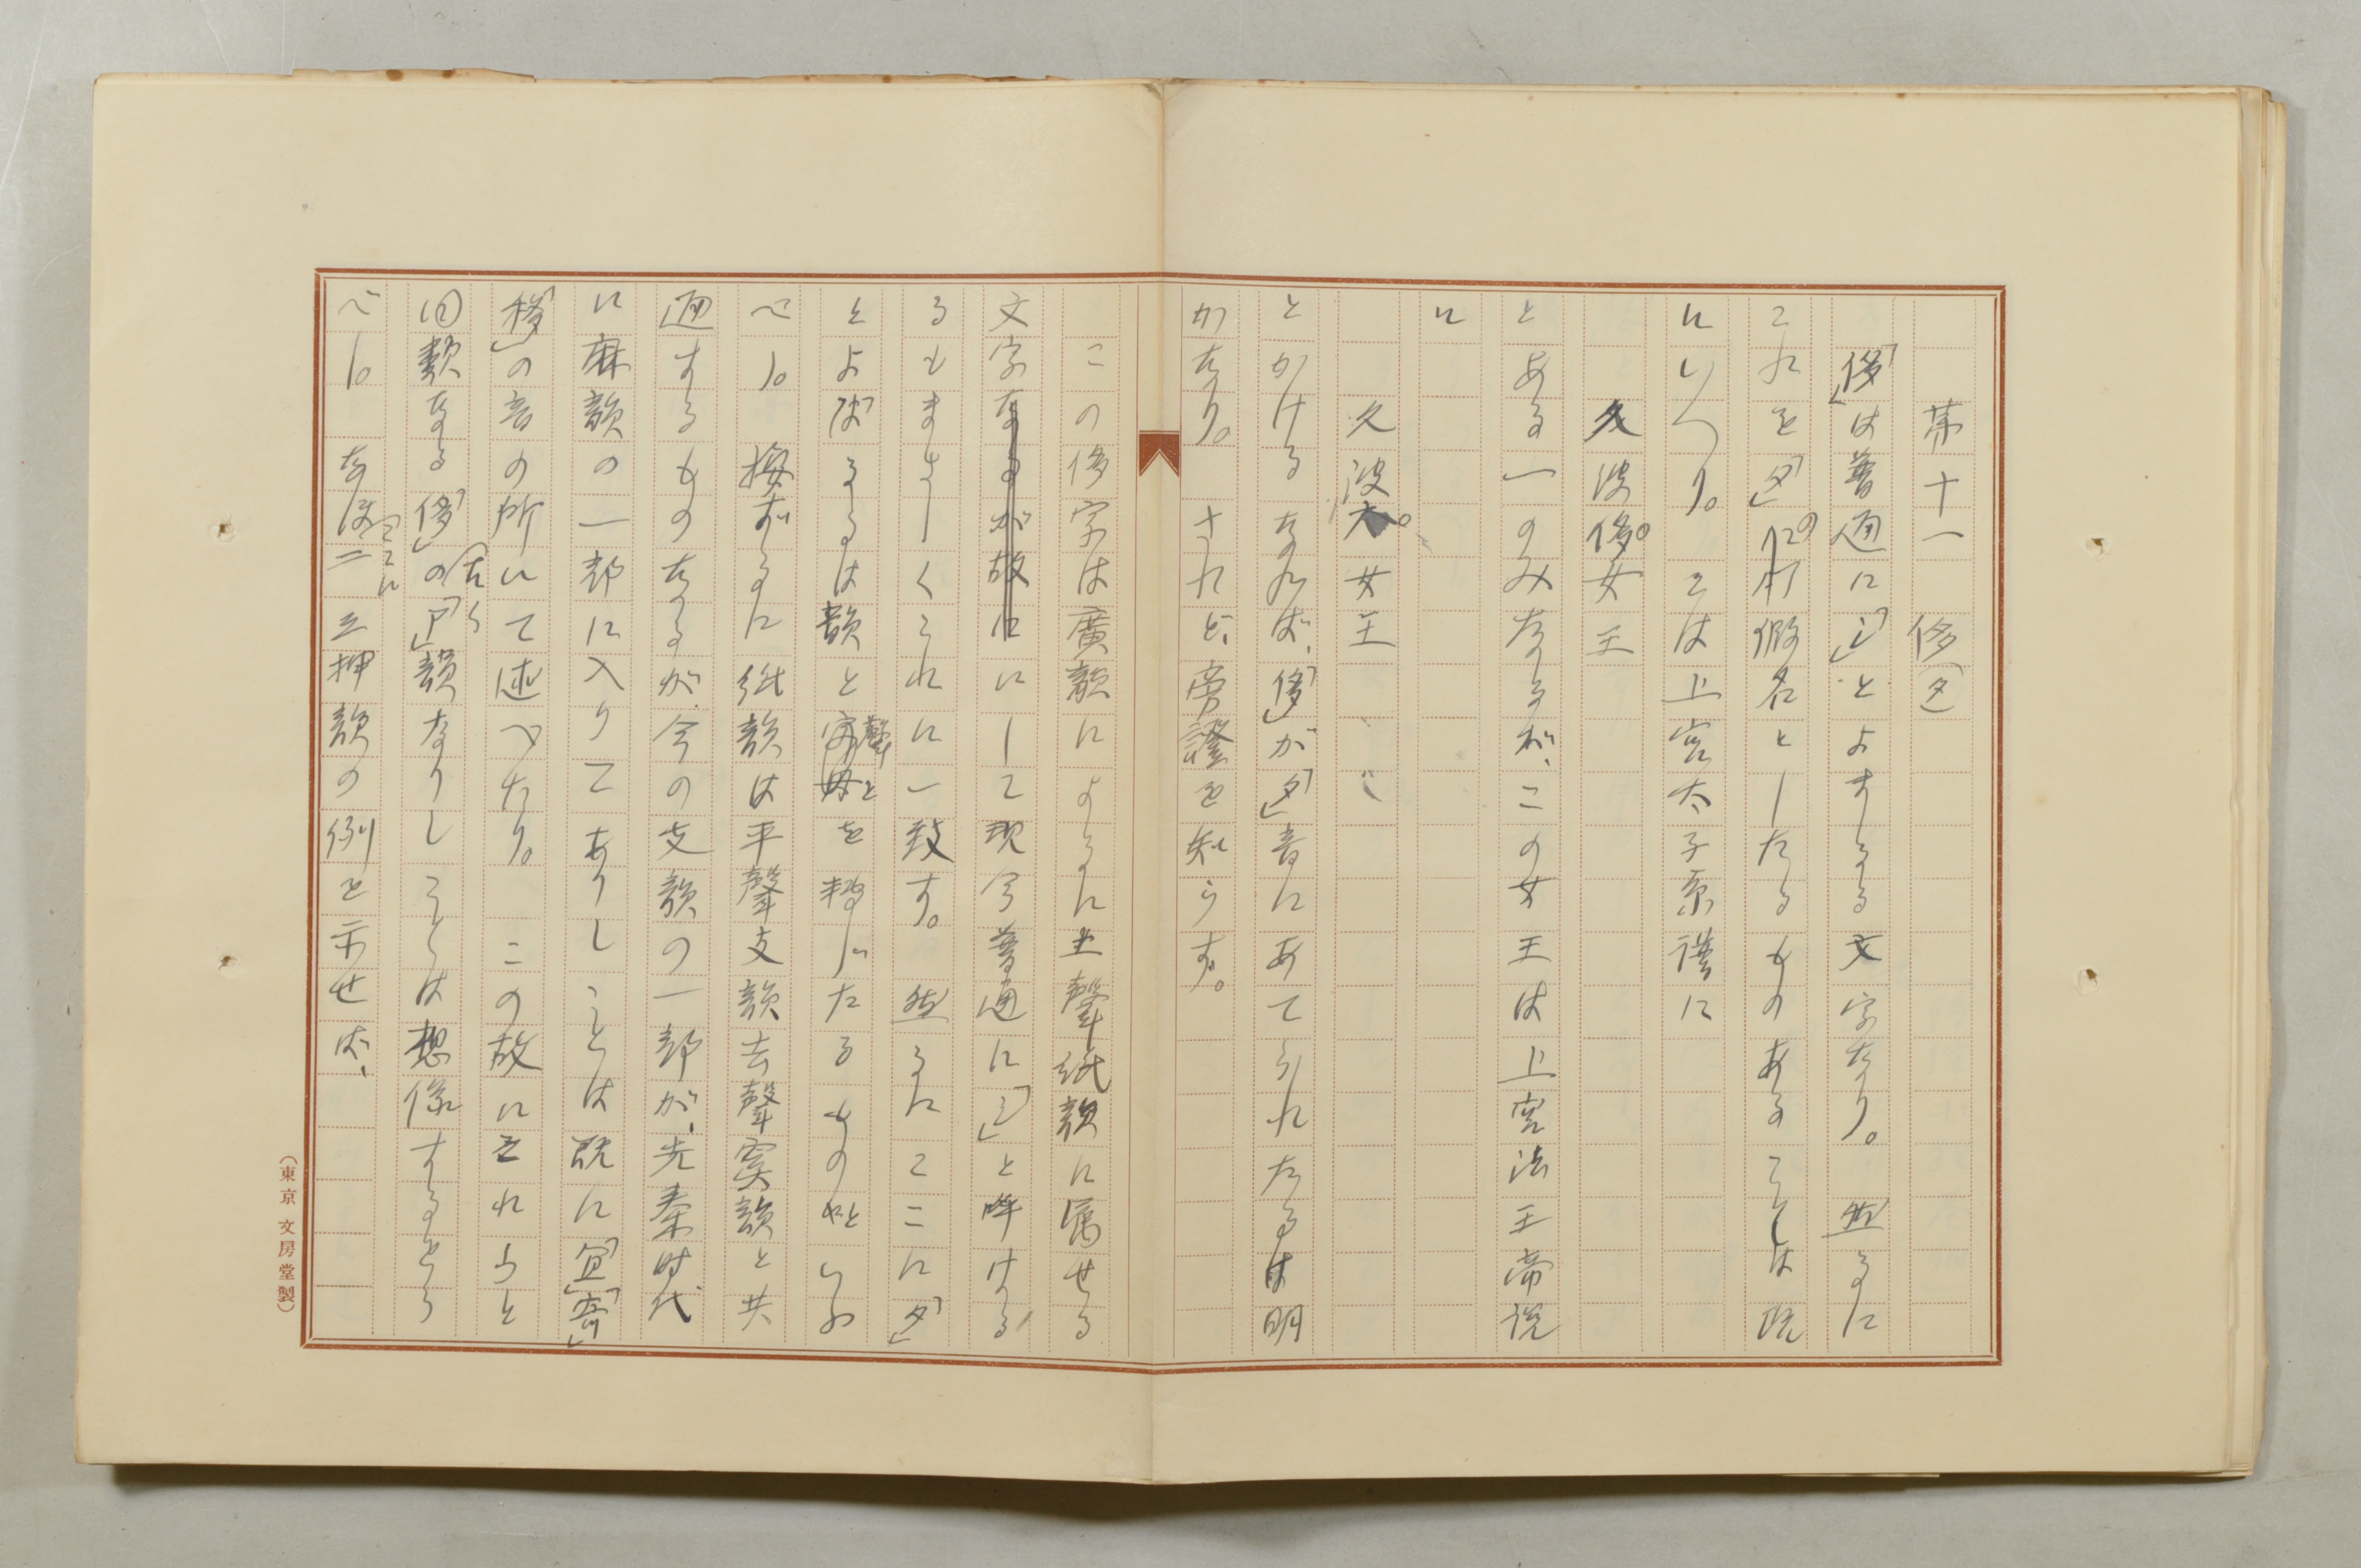 第十一 侈(タ)
「侈」は普通に「シ」とよまする文字なり。 然るに
これを「タ」の仮名としたるものあることは既
にいへり。 そは上宮太子系譜に
久波侈。女王
とある一のみなるが、この女王は上宮法王帝説
に
久波太。女王
とかける なれば、「侈」が「タ」音にあてられたるは明
かなり。 されど、旁證を知らず。
この侈字は廣韻によるに上聲紙韻に属せる
文字なるが故に にして現今普通に「シ」と呼ける
るもまさしくこれに一致す。 然るにここに「タ」
とよばるるは韻と聲とを転じたるものといふ
べし。 按ずるに紙韻は平聲支韻去聲寘韻と共
通するものなるが、今の支韻の一部が、先秦時代
に麻韻の一部に入りてありしことは既に「宜」「寄」
「移」の音の所にて述べたり。 この故にこれらと
同類なる「侈」の古く「ア」韻なりしことは想像するをう
べし。 なほここに二三押韻の例を示せば、
(東京 文房堂製)